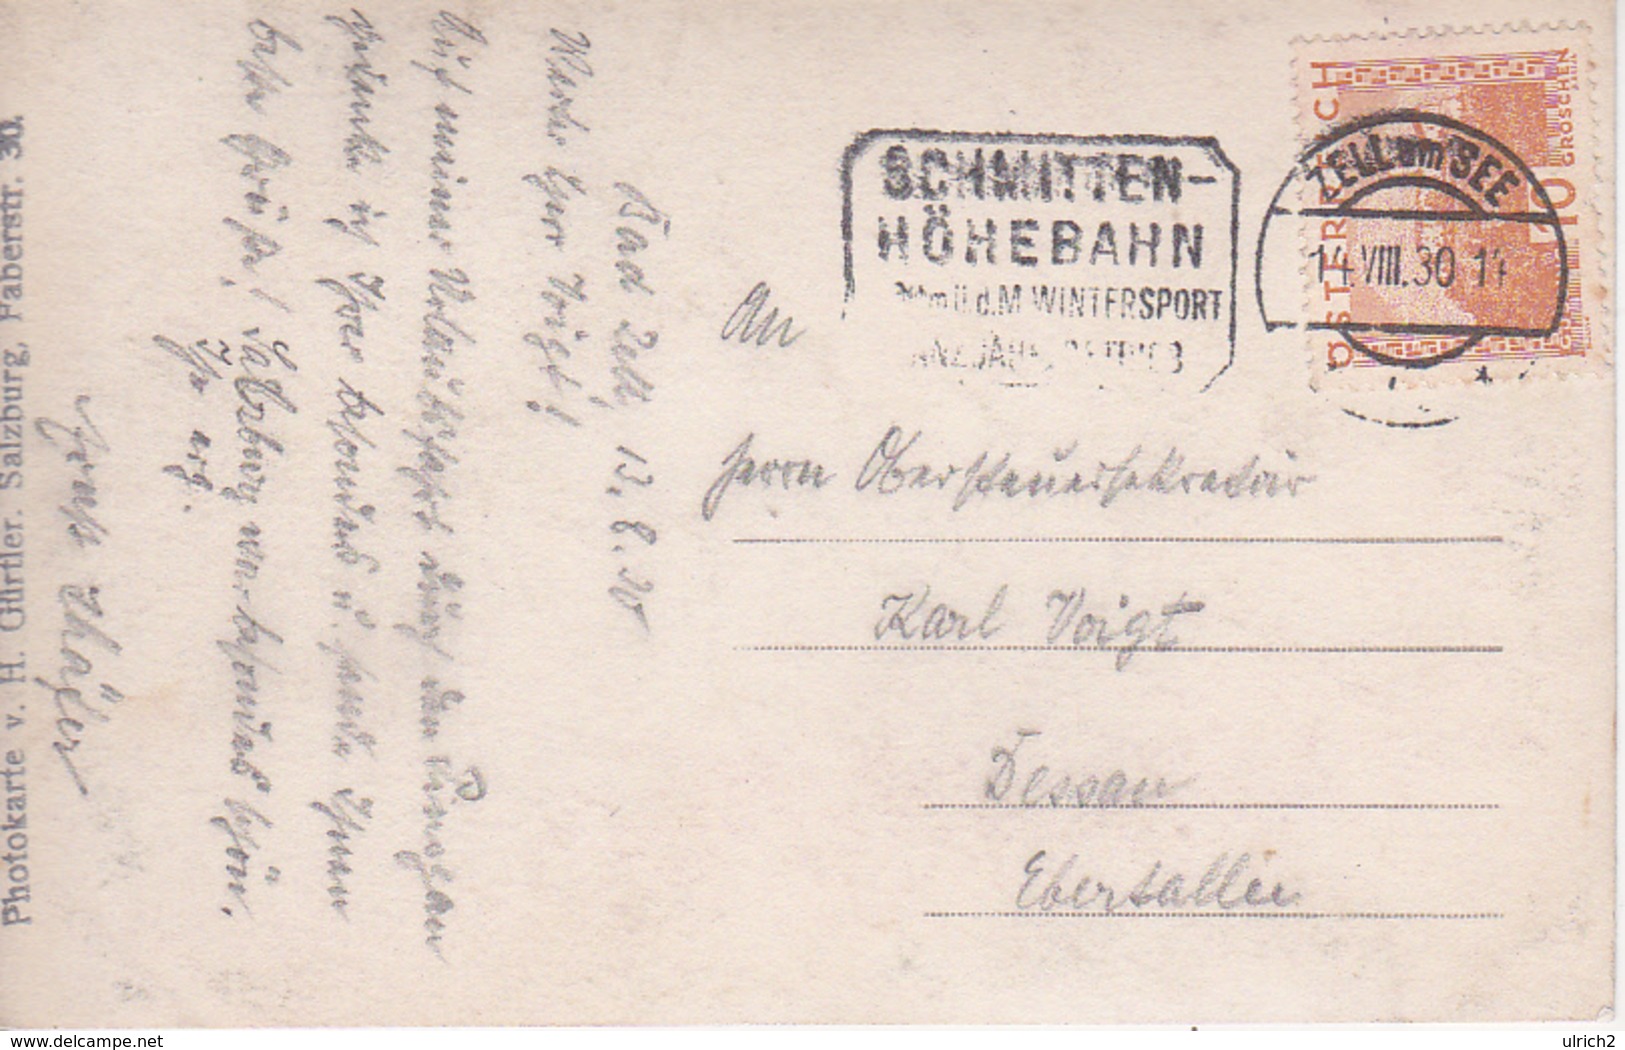 Photokarte v. H. Gürtler. Salzburg, Faberstr. 30.
Bad Zell, 13.8.30
Werter Herr Voigt!
Auf meiner Urlaubsfahrt durch den Pinzgau
gedenke ich Ihrer besonders u. sende Ihnen
beste Grüße! Salzburg war besonders schön.
Ihr erg.
Thäler
SCHMITTEN-
HÖHEBAHN
ü.d.M. WINTERSPORT
ZELL am SEE
14.VIII.30 14
ÖSTERREICH
10 GROSCHEN
An
Herrn Obersteuersekretär
Karl Voigt
Dessau
Ebertallee
delcampe.net
ulrich2